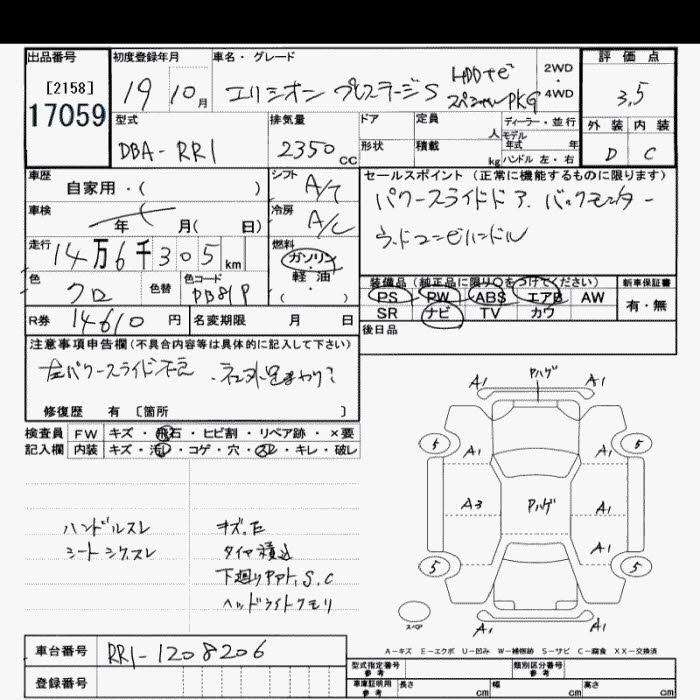 出品番号 初度登録年月 車名・グレード 評価点
[2158]
17059
19 10月 エリシオン プレステージS HDDナビ スペシャルPKG
2WD・4WD
3.5
型式 排気量 ドア 定員 人 ディーラー・並行
形状 積載 kg モデル年式 年式 ハンドル 左・右
外装 内装
DBA-RR1 2350cc
D C
車歴 自家用・( ) シフト A/T セールスポイント(正常に機能するものに限ります)
車検 年 月( 日) 冷房 A/C
パワースライドドア、バックモニター
ウッドコンビハンドル
走行 14万6千305km 燃料 ガソリン・軽油・( )
色 クロ 色替 色コード PB81P
装備品(純正品に限り○をつけてください) 新車保証書
PS PW ABS エアB AW 有・無
SR ナビ TV カワ
R券 14610円 名変期限 月 日 後日品
注意事項申告欄(不具合内容等は具体的に記入して下さい)
左パワースライド不良
修復歴 有 [箇所 ]
検査員記入欄 FW キズ・飛石・ヒビ割・リペア跡・×要
内装 キズ・汚レ・コゲ・穴・スレ・キレ・破レ
Pハゲ
A1 A1
5 5
A1 A1
A3 Pハゲ A1
A1
5 5
A1 A1
スペア
ハンドルスレ
シートシワスレ
タイヤ積込
下廻りPPト,S.C
ヘッドライトクモリ
A-キズ E-エクボ U-凹み W-補修跡 S-サビ C-腐食 XX-交換済
車台番号 RR1-1208206
登録番号
型式指定番号 参考 類別区分番号 参考
車庫証明用 参考 長さ cm 幅 cm 高さ cm